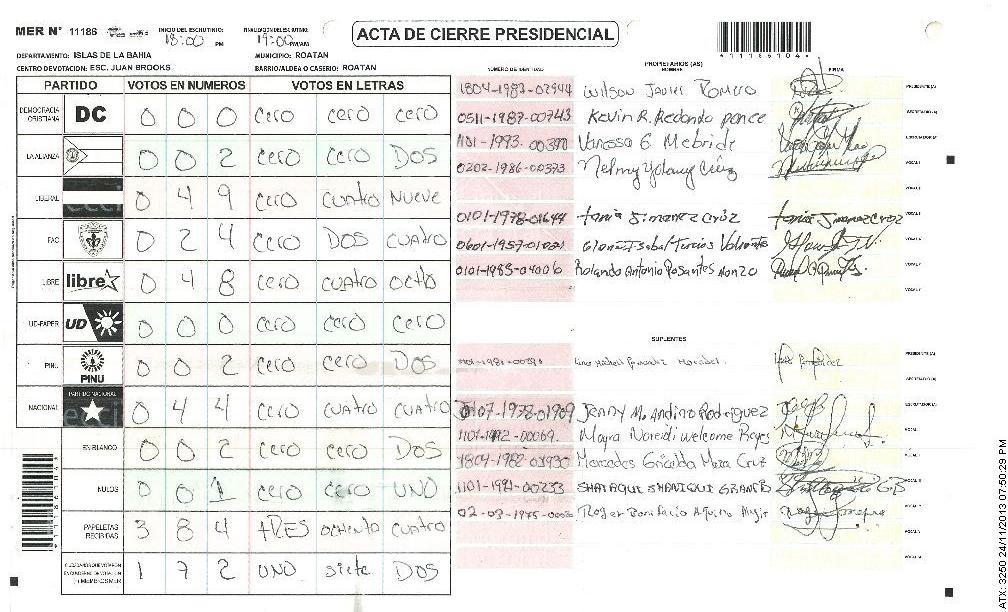 MER N° 11186 INICIO DEL ESCRUTINIO: 18:00 PM FINALIZACION DEL ESCRUTINIO: 19:00 PM/AM ACTA DE CIERRE PRESIDENCIAL *11186104*
DEPARTAMENTO: ISLAS DE LA BAHIA MUNICIPIO: ROATAN
CENTRO DE VOTACION: ESC. JUAN BROOKS BARRIO/ALDEA O CASERIO: ROATAN
NUMERO DE IDENTIDAD PROPIETARIOS (AS) NOMBRE FIRMA
PARTIDO VOTOS EN NUMEROS VOTOS EN LETRAS
1804-1987-02944 Wilson Javier Romero PRESIDENTE (A)
DEMOCRACIA CRISTIANA DC 0 0 0 cero cero cero
0511-1987-00743 Kevin R. Redondo ponce SECRETARIO (A)
1101-1993-00370 Vanessa G Mcbride ESCRUTADOR (A)
LA ALIANZA 0 0 2 cero cero DOS
0202-1986-00373 Nelmy Yolany Cruz VOCAL I
LIBERAL 0 4 9 cero cuatro Nueve
0101-1978-01644 tania Jimenez Cruz tania Jimenez Cruz
FAC 0 2 4 cero DOS cuatro
0601-1957-01021 Gloria Isabel Turcios
0101-1983-04006 Rolando Antonio
LIBRE libre 0 4 8 cero cuatro octo
UD-FAPER UD 0 0 0 cero cero cero
SUPLENTES
PRESIDENTE (A)
PINU PINU 0 0 2 cero cero DOS
SECRETARIO (A)
NACIONAL PARTIDO NACIONAL 0 4 4 cero cuatro cuatro
0107-1978-01909 Jenny M. Andino Rodriguez ESCRUTADOR (A)
1101-1992-00069 Mayra Noreidi welcome Reyes
EN BLANCO 0 0 2 cero cero DOS
1804-1982-03930 Mercedes Griselda Meza Cruz
NULOS 0 0 1 cero cero UNO
1101-1981-00233
PAPELETAS RECIBIDAS 3 8 4 tRES ochenta cuatro
Roger Bonifacio
1 7 2 UNO siete DOS
ATX: 3250 24/11/2013 07:50:29 PM